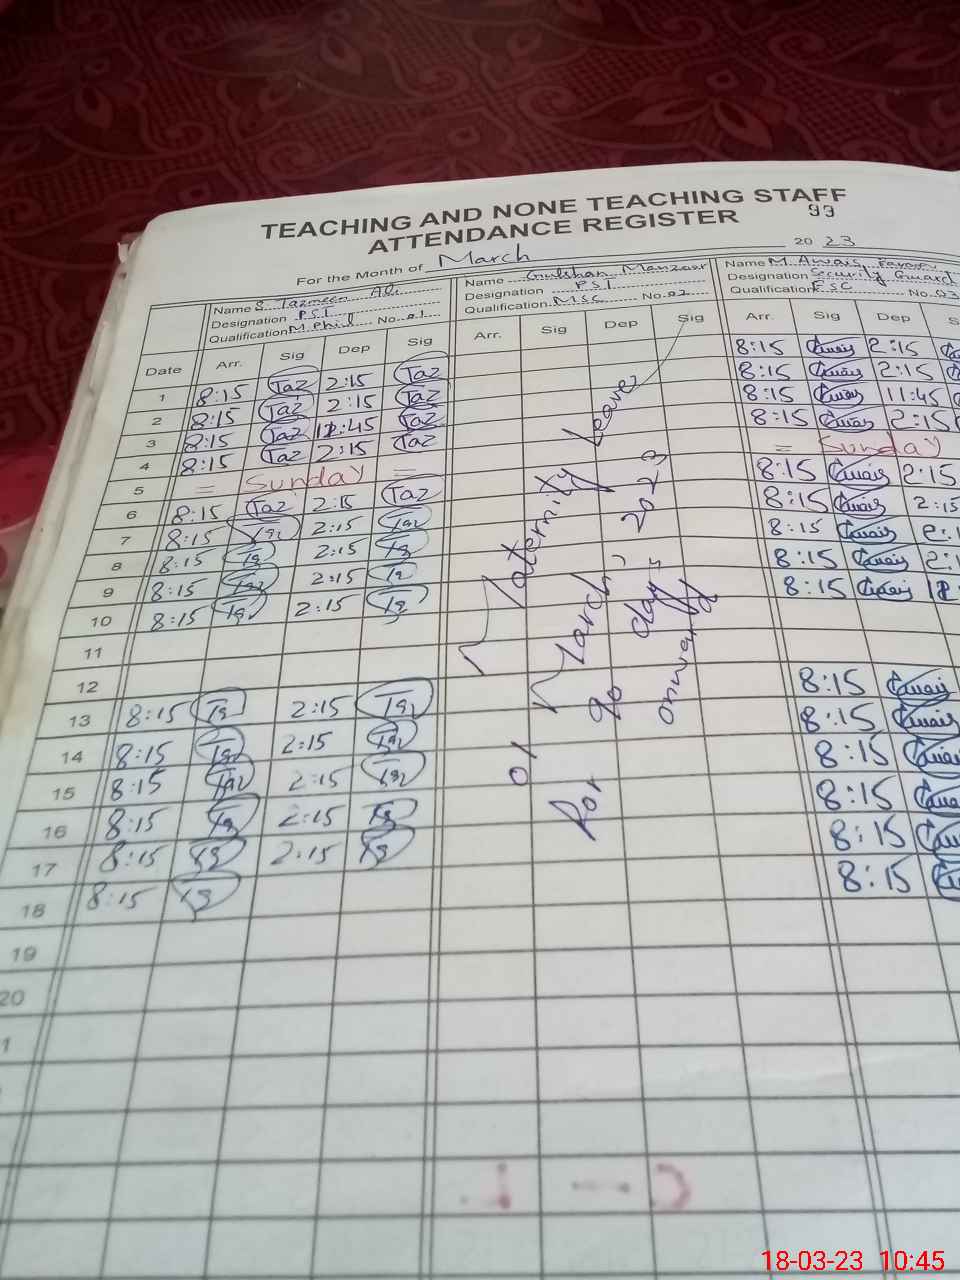 TEACHING AND NONE TEACHING STAFF
ATTENDANCE REGISTER
93
For the Month of March 20 23
Name S. Tazmeen Ali
Designation PST
Qualification M Phil No. 01
Name Gulshan Manzoor
Designation PST
Qualification MSC No. 02
Name M. Awais
Designation Security Guard
Qualification FSC No. 03
Date Arr. Sig Dep Sig Arr. Sig Dep Sig Arr. Sig Dep
1 8:15 Taz 2:15 Taz 8:15 Awais 2:15
2 8:15 Taz 2:15 Taz 8:15 Awais 2:15
3 8:15 Taz 12:45 Taz 8:15 Awais 11:45
4 8:15 Taz 2:15 Taz 8:15 Awais 2:15
5 = Sunday = = Sunday
6 8:15 Taz 2:15 Taz 8:15 Awais 2:15
7 8:15 2:15 8:15 Awais 2:15
8 8:15 2:15 8:15 Awais
9 8:15 2:15 8:15 Awais
10 8:15 2:15 8:15 Awais
11
12
13 8:15 2:15 8:15 Awais
14 8:15 2:15 8:15 Awais
15 8:15 2:15 8:15
16 8:15 2:15 8:15
17 8:15 2:15 8:15
18 8:15 8:15
19
20
Maternity Leave
01 March, 2023
For 90 days
onward
18-03-23 10:45